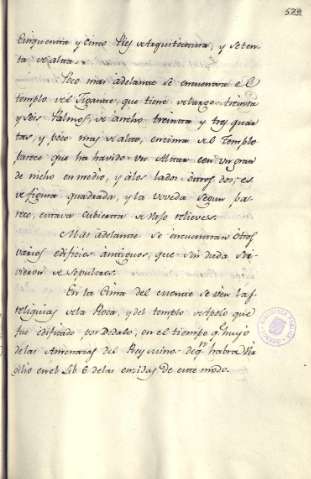 529
Cinquenta y cinco Pies de Arquitectura, y setenta de altura.
Poco mas adelante se encuentra el
templo del Gigante, que tiene de largo treinta
y seis Palmos, de ancho, treinta y tres quar
tas, y poco mas de alto, encima del Templo
parece que ha havido un Altar con un gran
de nicho en medio, y a los lados otros dos; es
de figura quadrada, y la voveda segun pa
rece, estava cubierta de vaso relieves.
Mas adelante se encuentran otros
varios edificios antiguos, que sin duda sir
vieron de sepulcros.
En la Cima del cuente se ven las
reliquias de la Roca, y del templo de Apolo que
fue edificado por Dedalo, en el tiempo q.e huyo
de las Amenazas del Rey Minos de q.n habra Vir
gilio en el Lib 6 de las eneidas de este modo.